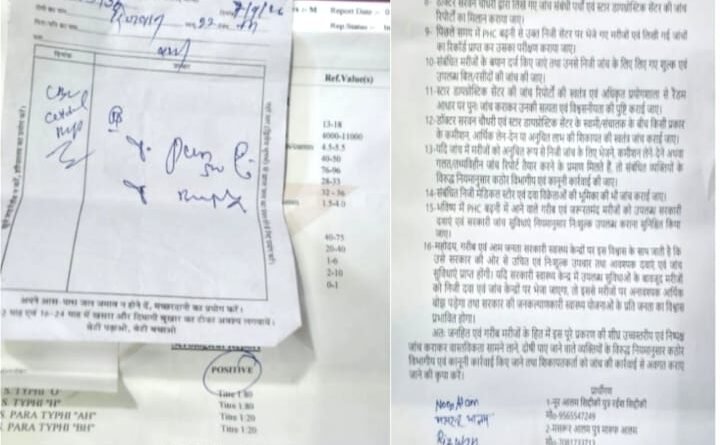 22
7/9/26
: - M
Report Date :-
Rep.Status :-
दिनांक
CBC
Ref.Value(s)
13-18
4000-11000
4.5-5.5
40-50
76-96
28-33
32-36
1.5-4.0
40-75
20-40
1-6
2-10
0-1
अपने आस-पास जल जमाव न होने दें, मच्छरदानी का प्रयोग करें।
बेटी पढ़ाओ, बेटी बचाओ
POSITIVE
S. TYPHI 'O'
Titre 1:80
S. TYPHI "H"
Titre 1:80
S. PARA TYPHI "AH"
Titre 1:20
S. PARA TYPHI "BH"
Titre 1:20
8- डॉक्टर सरवन चौधरी द्वारा लिखे गए जांच संबंधी पर्चों एवं स्टार डायग्नोस्टिक सेंटर की जांच
रिपोर्टों का मिलान कराया जाए।
9- पिछले समय में PHC बढ़नी से उक्त निजी सेंटर पर भेजे गए मरीजों एवं लिखी गई जांचों
का रिकॉर्ड प्राप्त कर उसका परीक्षण कराया जाए।
10-संबंधित मरीजों के बयान दर्ज किए जाएं तथा उनसे निजी जांच के लिए लिए गए शुल्क एवं
उपलब्ध बिल/रसीदों की जांच की जाए।
11-स्टार डायग्नोस्टिक सेंटर की जांच रिपोर्टों की स्वतंत्र एवं अधिकृत प्रयोगशाला से रैंडम
आधार पर पुनः जांच कराकर उनकी सत्यता एवं विश्वसनीयता की पुष्टि कराई जाए।
12-डॉक्टर सरवन चौधरी एवं स्टार डायग्नोस्टिक सेंटर के स्वामी/संचालक के बीच किसी प्रकार
के कमीशन, आर्थिक लेन-देन या अनुचित लाभ की शिकायत की स्वतंत्र जांच कराई जाए।
13-यदि जांच में मरीजों को अनुचित रूप से निजी जांच के लिए भेजने, कमीशन लेने-देने अथवा
गलत/तथ्यविहीन जांच रिपोर्ट तैयार करने के प्रमाण मिलते हैं, तो संबंधित व्यक्तियों के
विरुद्ध नियमानुसार कठोर विभागीय एवं कानूनी कार्रवाई की जाए।
14-संबंधित निजी मेडिकल स्टोर एवं दवा विक्रेताओं की भूमिका की भी जांच कराई जाए।
15-भविष्य में PHC बढ़नी में आने वाले गरीब एवं जरूरतमंद मरीजों को उपलब्ध सरकारी
दवाएं एवं सरकारी जांच सुविधाएं नियमानुसार निःशुल्क उपलब्ध कराना सुनिश्चित किया
जाए।
16-महोदय, गरीब एवं आम जनता सरकारी स्वास्थ्य केन्द्रों पर इस विश्वास के साथ जाती है कि
उसे सरकार की ओर से उचित एवं निःशुल्क उपचार तथा आवश्यक दवाएं एवं जांच
सुविधाएं प्राप्त होंगी। यदि सरकारी स्वास्थ्य केन्द्र में उपलब्ध सुविधाओं के बावजूद मरीजों
को निजी दवा एवं जांच केन्द्रों पर भेजा जाएगा, तो इससे मरीजों पर अनावश्यक आर्थिक
बोझ पड़ेगा तथा सरकार की जनकल्याणकारी स्वास्थ्य योजनाओं के प्रति जनता का विश्वास
प्रभावित होगा।
अतः जनहित एवं गरीब मरीजों के हित में इस पूरे प्रकरण की शीघ्र उच्चस्तरीय एवं निष्पक्ष
जांच कराकर वास्तविकता सामने लाने, दोषी पाए जाने वाले व्यक्तियों के विरुद्ध नियमानुसार कठोर
विभागीय एवं कानूनी कार्रवाई किए जाने तथा शिकायतकर्ता को जांच की कार्रवाई से अवगत कराए
जाने की कृपा करें।
प्रार्थीगण
Noor Alam
1-नूर आलम सिद्दीकी पुत्र रईस सिद्दीकी
मो0-9565547249
2-मसरूर आलम पुत्र मारूफ आलम